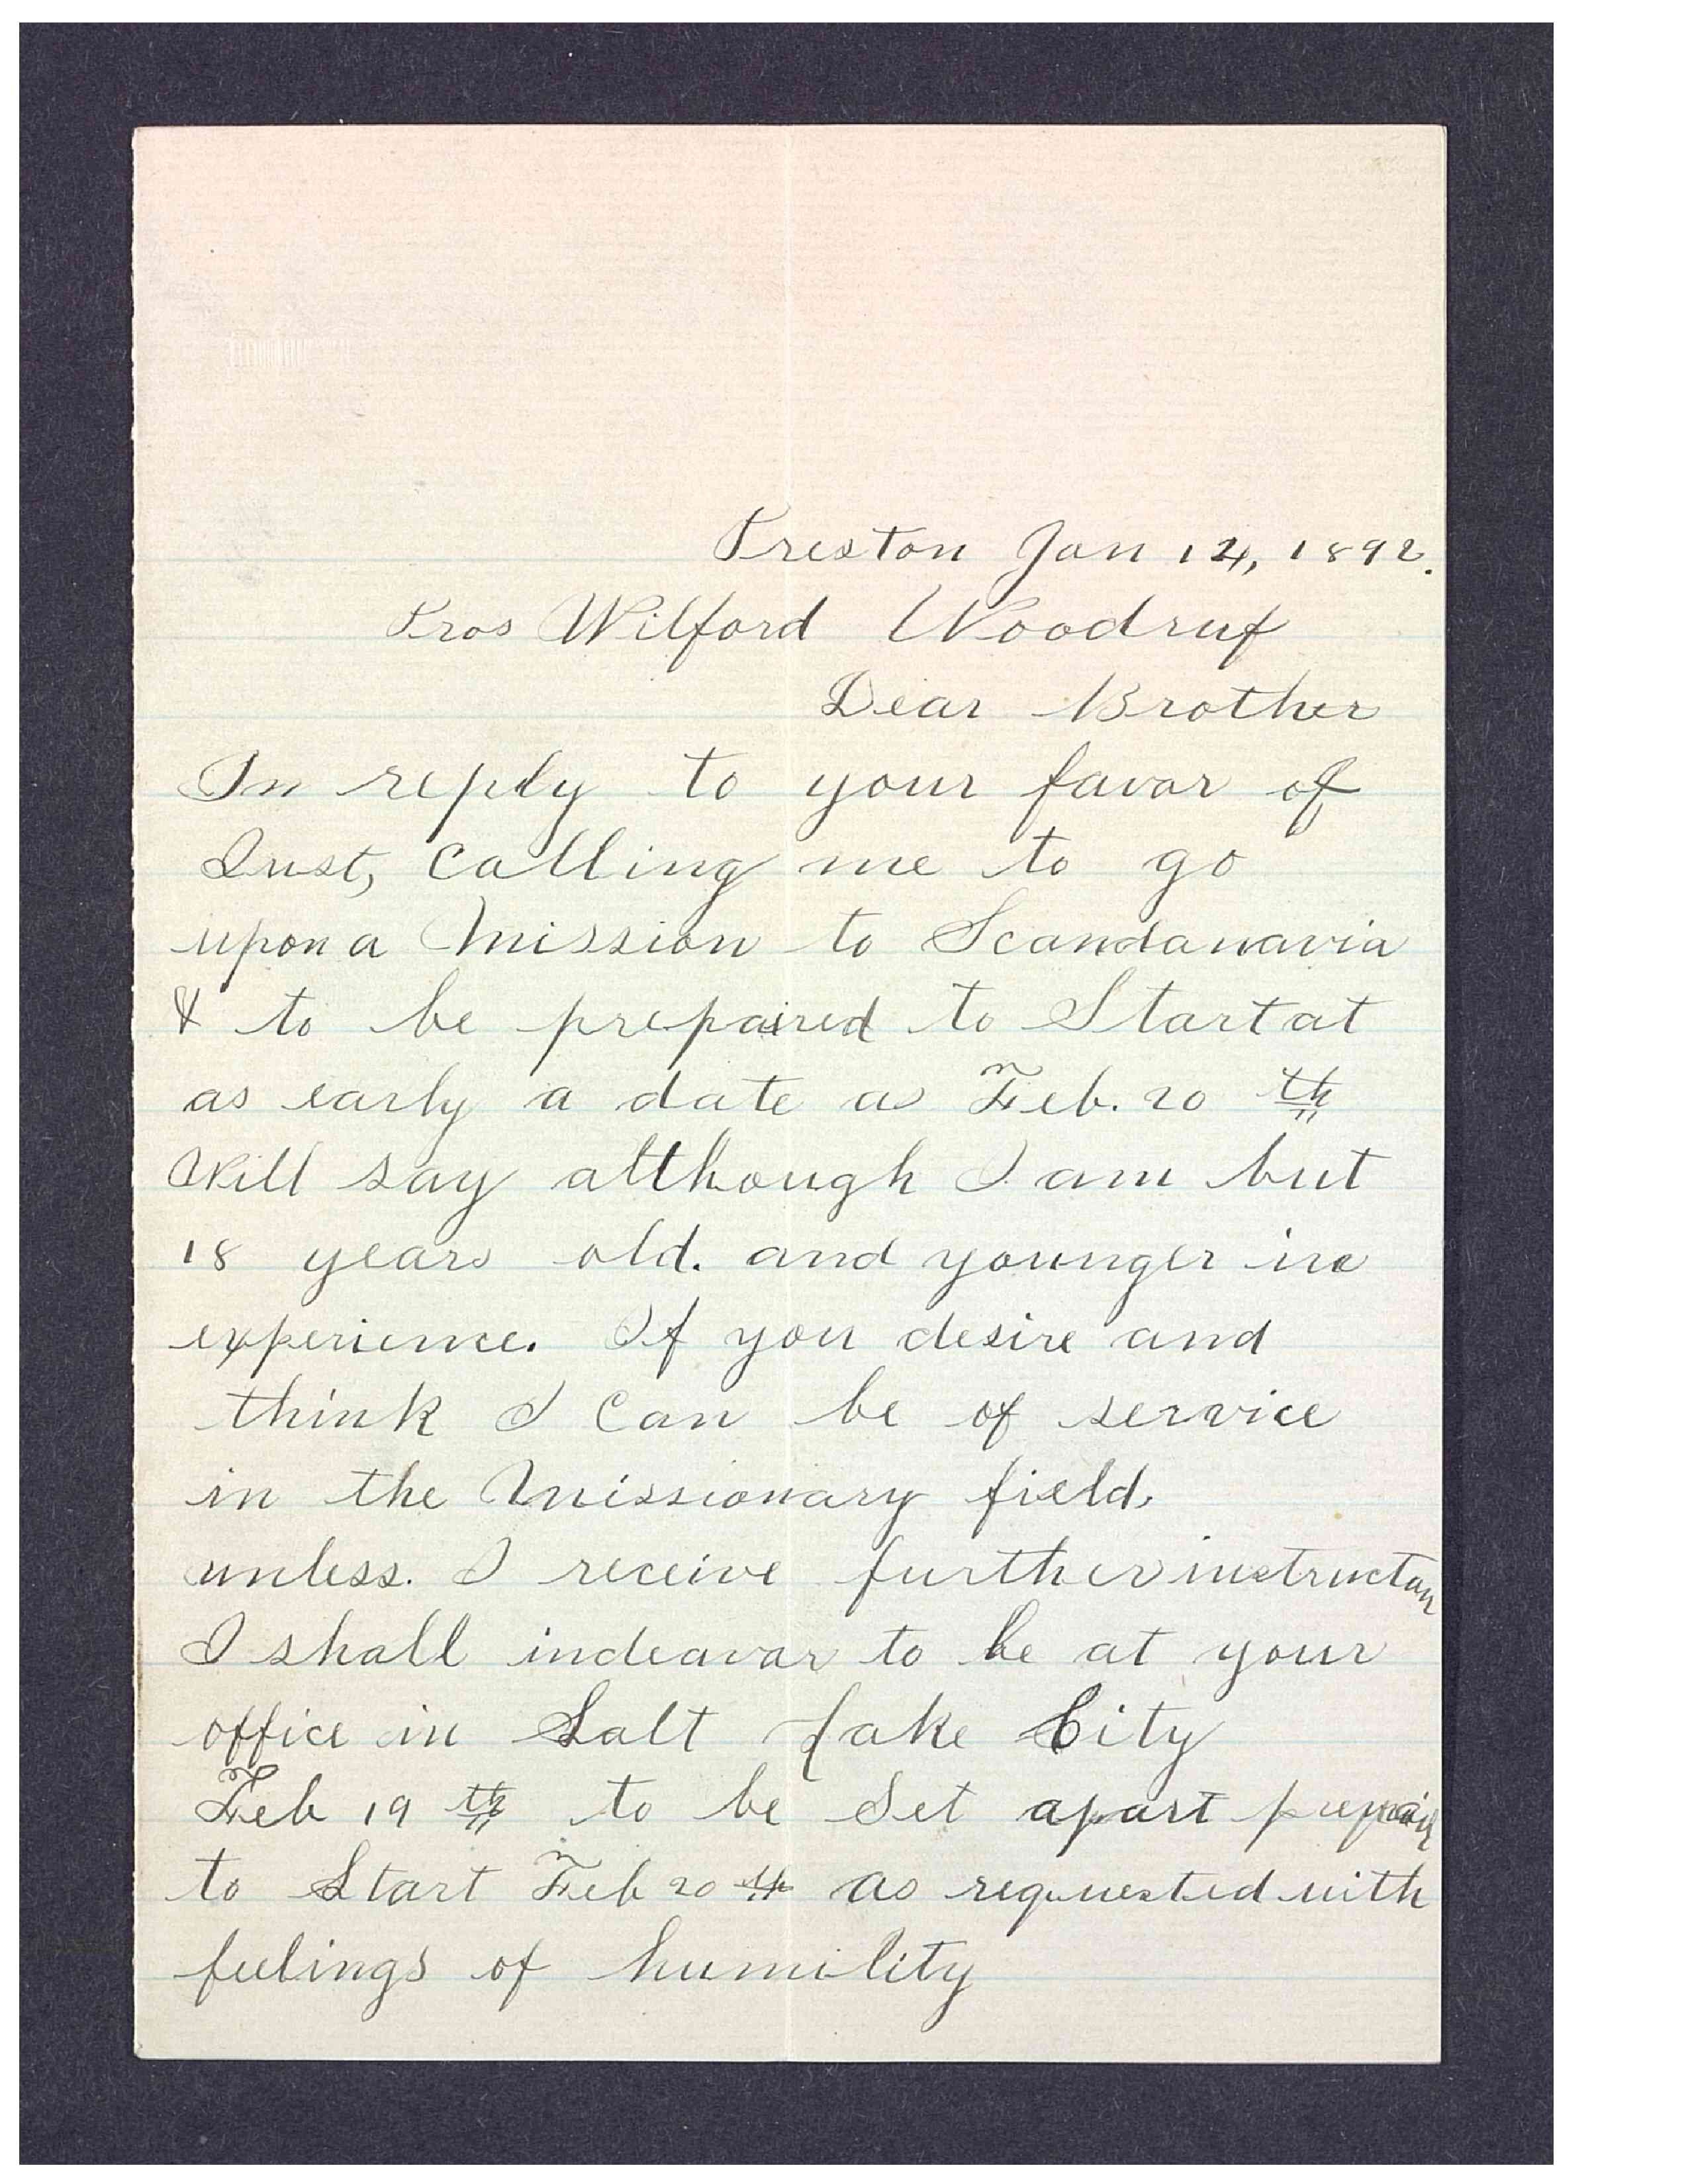 Preston Jan 14, 1892.
Pros Wilford Woodruf
Dear Brother
In reply to your favor of
Inst, Calling me to go
upon a Mission to Scandanavia
& to be prepaired to Start at
as early a date as Feb. 20 th
Will say although I am but
18 years old. and younger in
experience. If you desire and
think I Can be of service
in the Missionary field,
unless. I receive further instructan
I shall indeavar to be at your
office in Salt Lake City
Feb 19 th to be Set apart
to Start Feb 20 th as requested with
feelings of humility